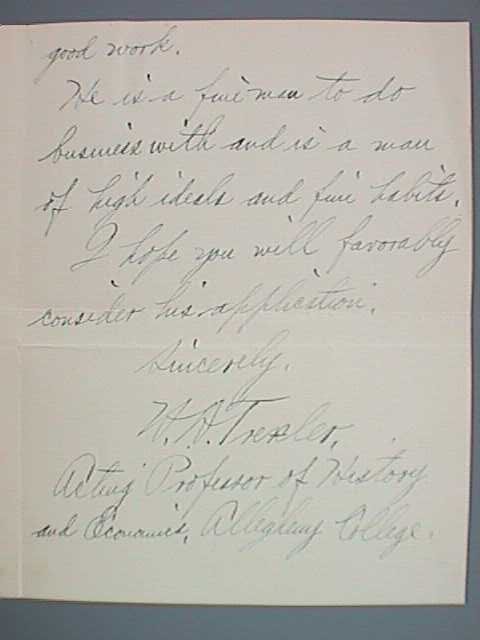 good work.
He is a fine man to do
business with and is a man
of high ideals and fine habits.
I hope you will favorably
consider his application.
Sincerely.
H. A. Trexler.
Acting Professor of History
and Economics, Allegheny College.